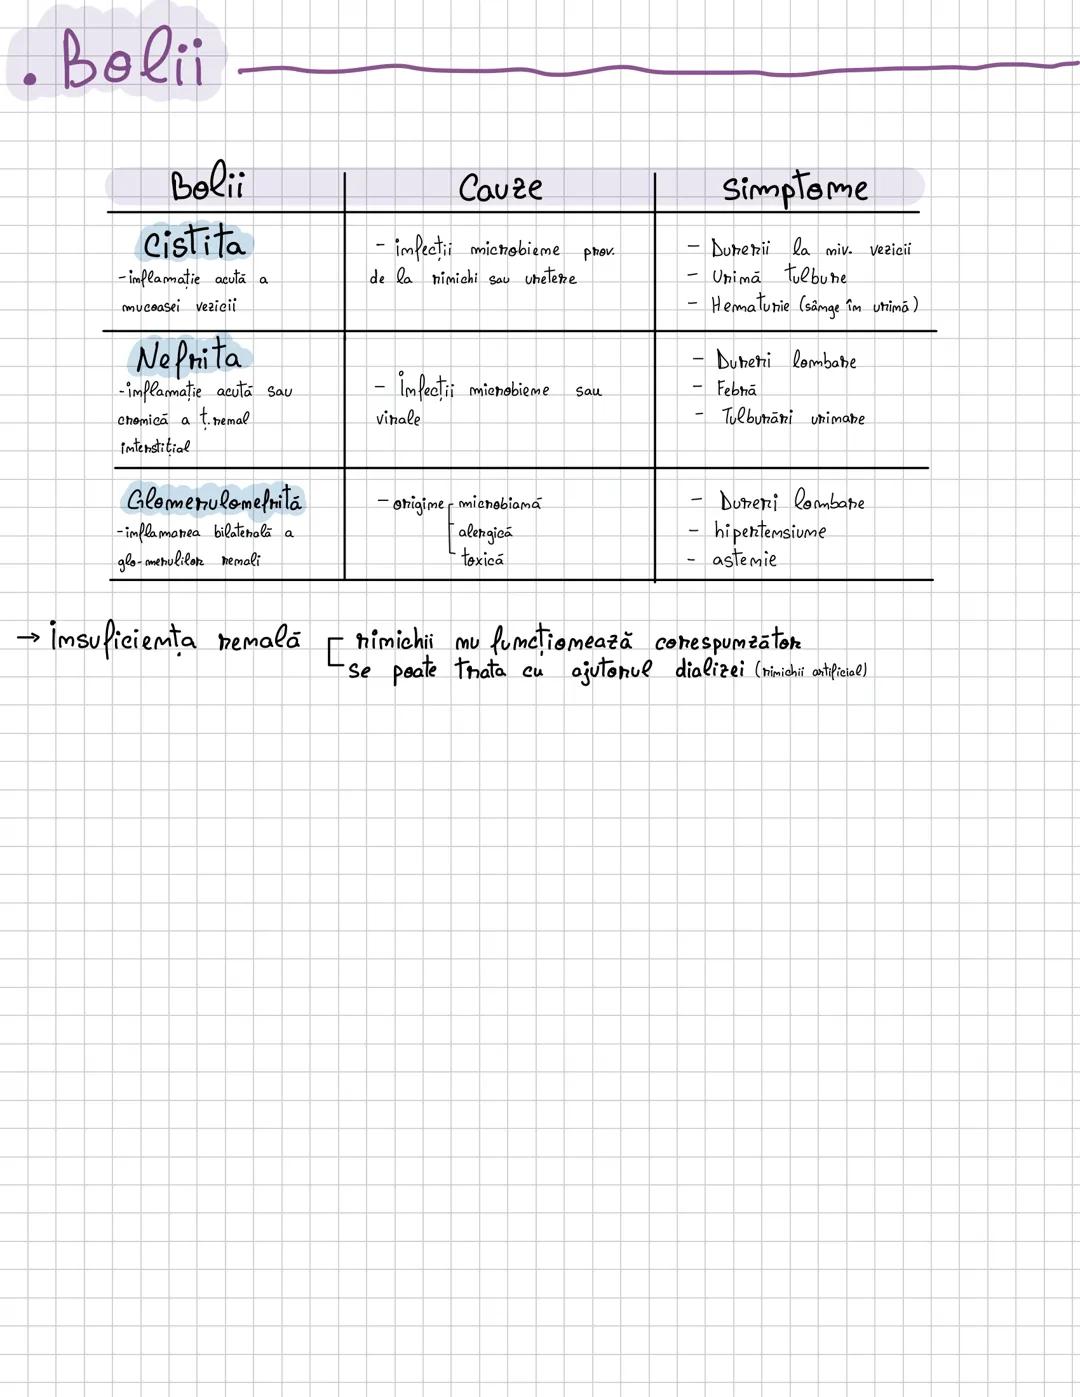 . Bolii
Bolii Cauze Simptome
Cistita
- inflamație acută a
mucoasei vezicii
- infecții microbiene prov.
de la rinichi sau uretere
- Durerii la niv. vezicii
- Urină tulbure
- Hematurie (sânge în urină)
Nefrita
- inflamație acută sau
cronică a ț. renal
interstițial
- Infecții microbiene sau
virale
- Dureri lombare
- Febră
- Tulburări urinare
Glomerulonefrită
- inflamarea bilaterală a
glo-merulilor renali
- origine microbiană
alergică
toxică
- Dureri lombare
- hipertensiune
- astenie
→ insuficiența renală rinichii nu funcționează corespunzător
se poate trata cu ajutorul dializei (rinichii artificial)